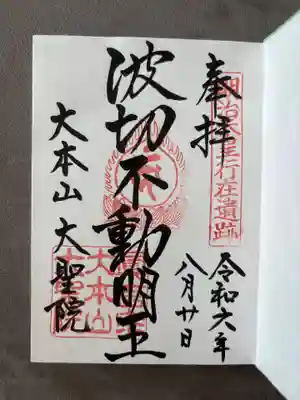 奉拝
明治天皇行在遺跡
令和六年
八月廿日
波切不動明王
大本山 大聖院